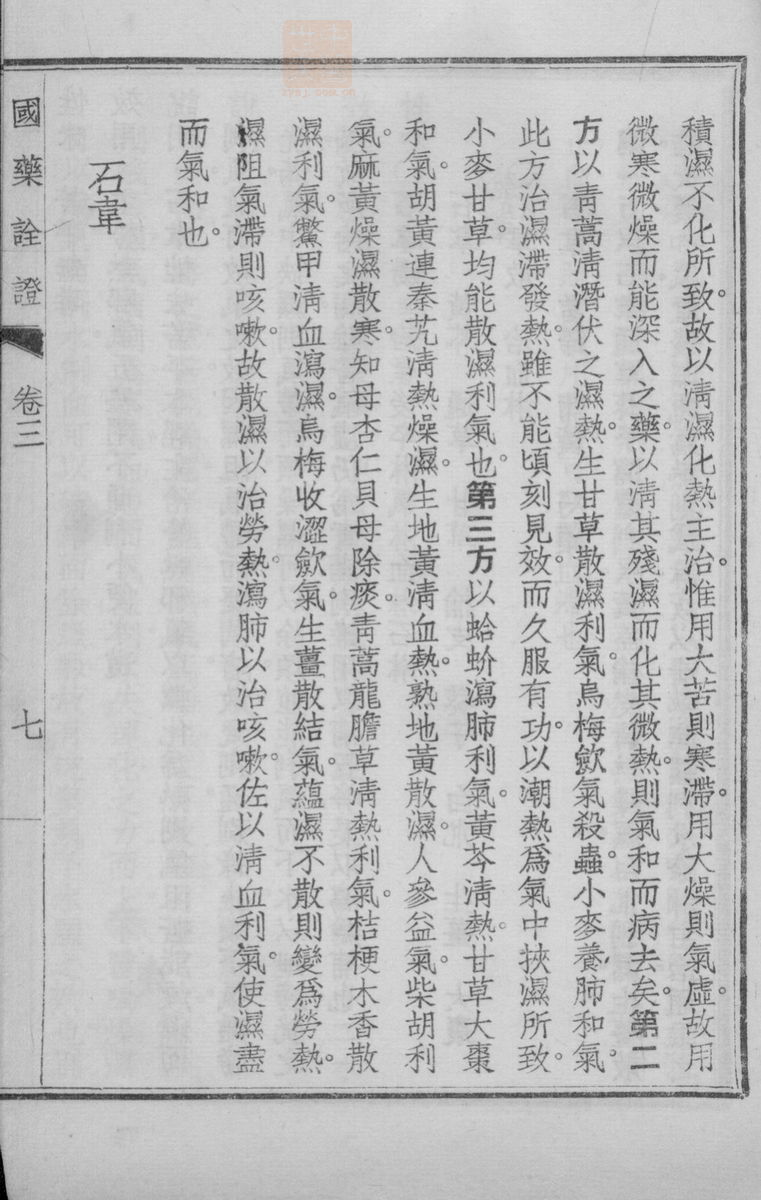 積濕不化所致。故以清濕化熱主治。惟用大苦則寒滯。用大燥則氣虛。故用
微寒微燥而能深入之藥。以清其殘濕而化其微熱。則氣和而病去矣。第二
方以青蒿清潛伏之濕熱。生甘草散濕利氣。烏梅歛氣殺蟲。小麥養肺和氣。
此方治濕滯發熱。雖不能頃刻見效。而久服有功。以潮熱爲氣中挾濕所致。
小麥甘草。均能散濕利氣也。第三方以蛤蚧瀉肺利氣。黃芩清熱。甘草大棗
和氣。胡黃連秦艽清熱燥濕。生地黃清血熱。熟地黃散濕。人參益氣。柴胡利
氣。麻黃燥濕散寒。知母杏仁貝母除痰。青蒿龍膽草清熱利氣。桔梗木香散
濕利氣。鱉甲清血瀉濕。烏梅收澀歛氣。生薑散結氣。蘊濕不散則變爲勞熱。
濕阻氣滯則咳嗽。故散濕以治勞熱。瀉肺以治咳嗽。佐以清血利氣。使濕盡
而氣和也。
石韋
國藥詮證 卷三 七